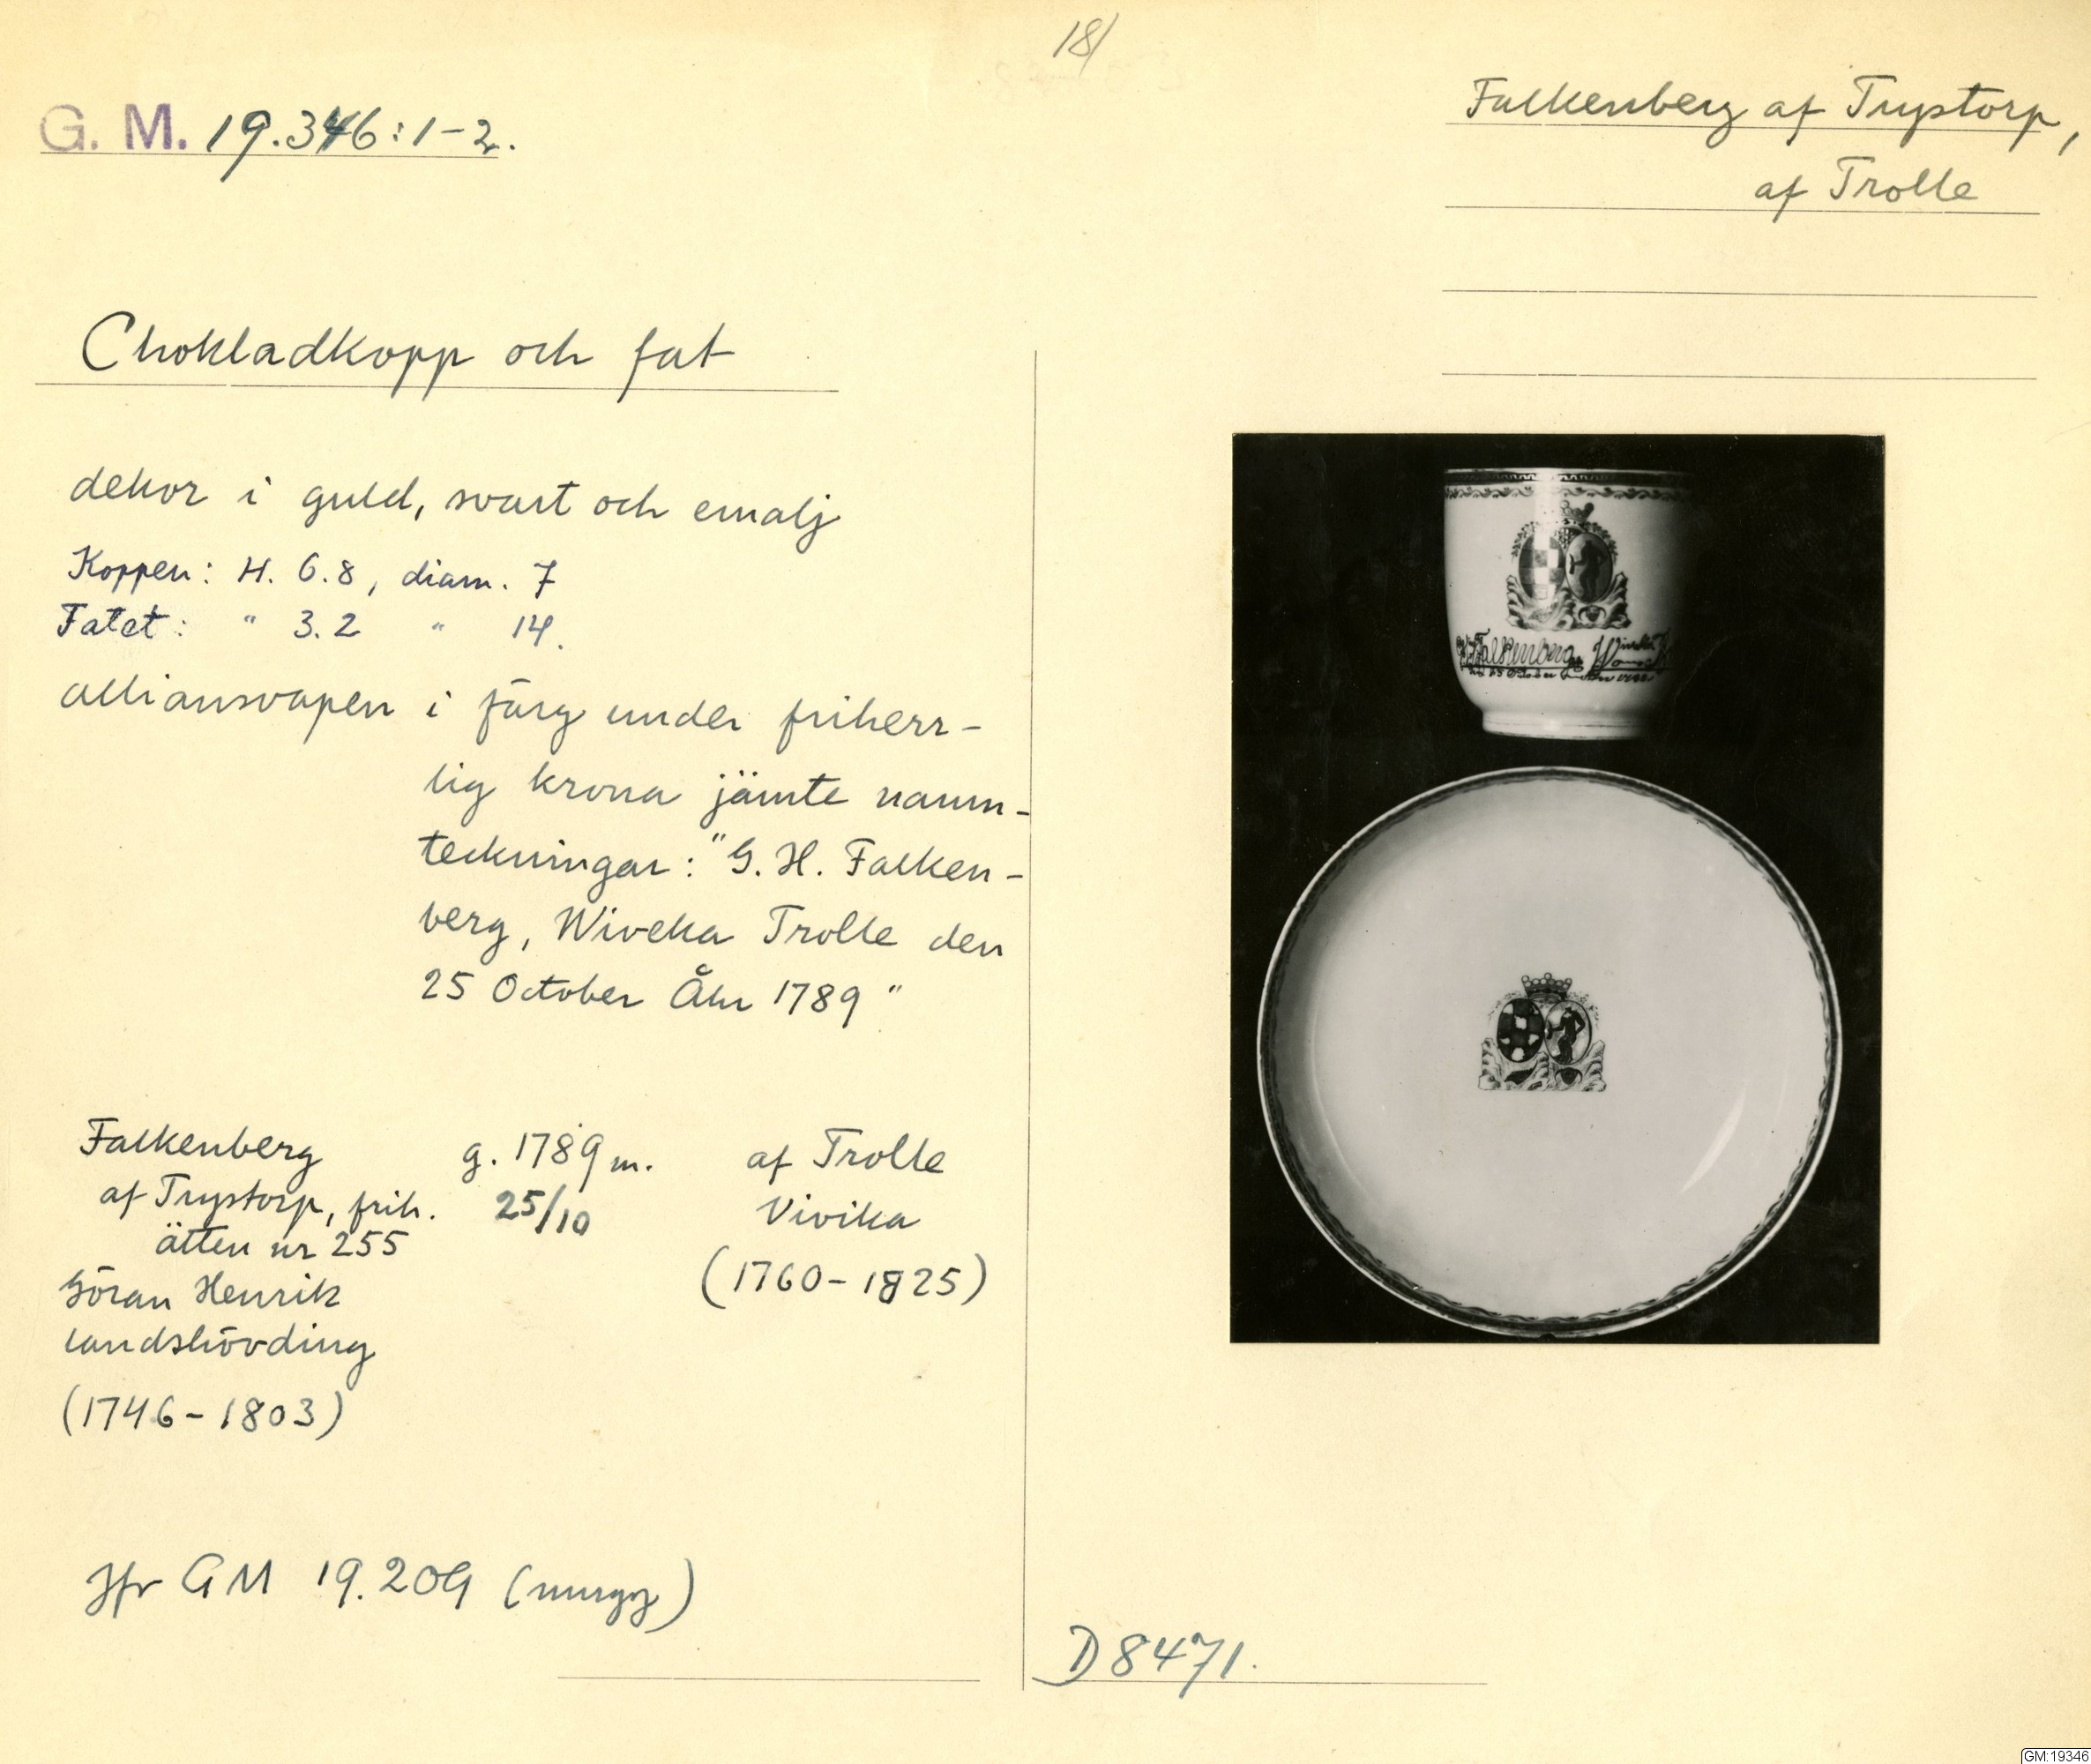 18/
G. M. 19.346:1-2.
Falkenberg af Trystorp,
af Trolle
Chokladkopp och fat
dekor i guld, svart och emalj
Koppen: H. 6.8, diam. 7
Fatet: " 3.2 " 14.
alliansvapen i färg under friherr-
lig krona jämte namn-
teckningar: "G. H. Falken-
berg, Wiveka Trolle den
25 October Åhr 1789"
Falkenberg g. 1789 m. af Trolle
af Trystorp, frih. 25/10 Vivika
ätten nr 255 (1760-1825)
Göran Henrik
landshövding
(1746-1803)
Jfr GM 19.209 (mugg)
D 8471.
Falkenberg
25 October
GM:19346